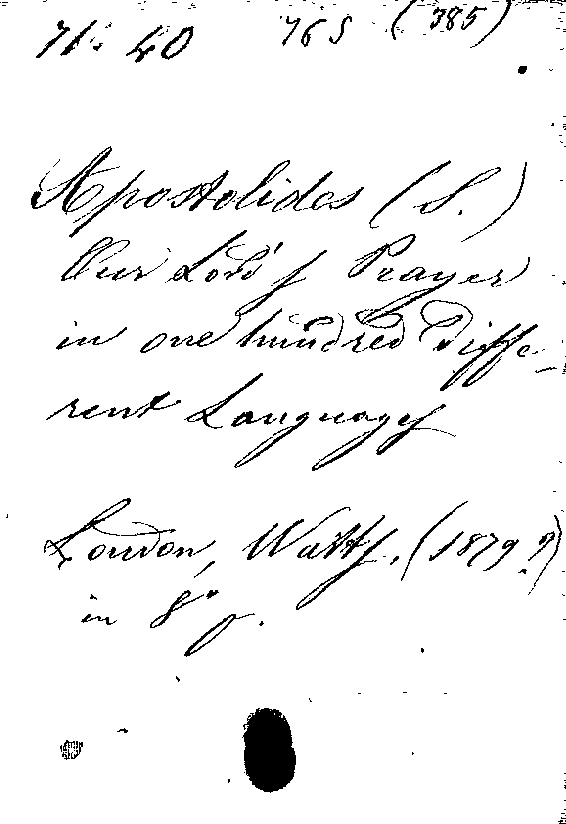 71. 40 765 (385)
Apostolides (S.)
Our Lord's Prayer
in one hundred diffe-
rent Languages
London, Watts, (1879?)
in 8° g.